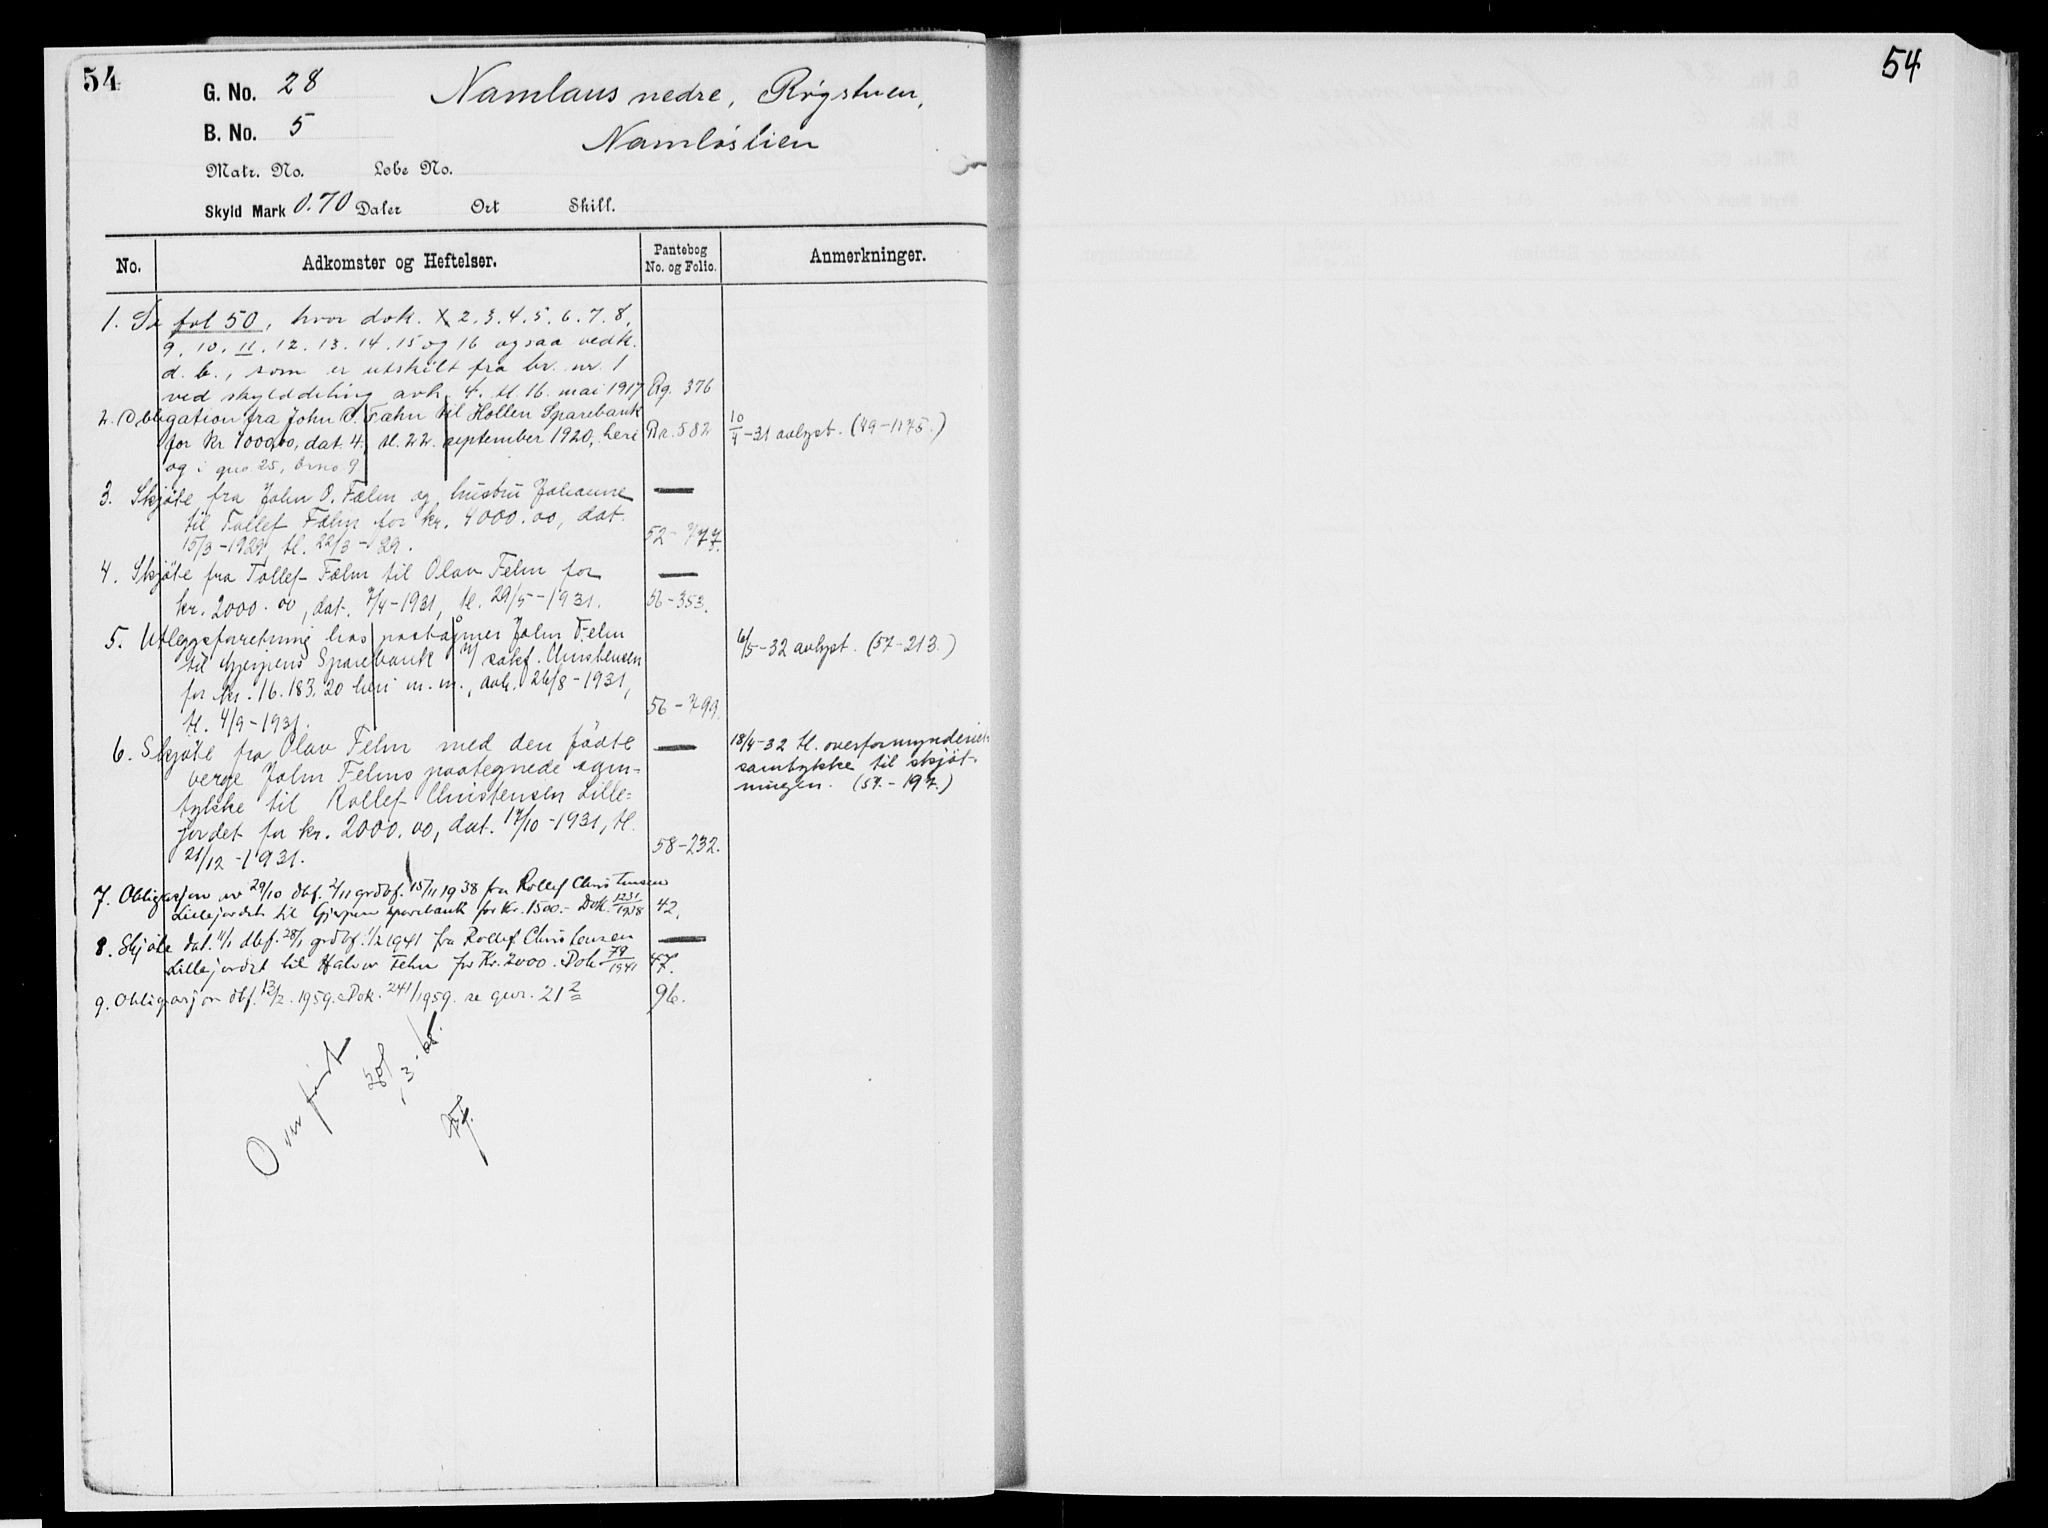 54
G. No. 28
Namlaus nedre, Røgstuen,
B. No. 5
Namløslien
Matr. No. Løbe No.
Skyld Mark 0.70 Daler Ort Skill.
No. Adkomster og Heftelser. Pantebog No. og Folio. Anmerkninger.
1. Se fol 50, hvor dok. 2. 3. 4. 5. 6. 7. 8.
9. 10. 11. 12. 13. 14. 15 og 16 ogsaa vedk.
d. b., som er utskilt fra br. nr. 1
ved skylddeling avh. 4. tl. 16. mai 1917 Qq. 376
2. Obligation fra John O. Fæhn til Hollen Sparebank
for kr 7000,00, dat. 4. tl. 22. september 1920, heri Rr. 582 10/4-31 avlyst. (49-1175.)
og i gno 25, brno 9
3. Skjøte fra John O. Fælm og hustru Johanne —
til Tollef Fælm for kr. 4000.00, dat.
15/3-1929, tl. 22/3-29. 52-777.
4. Skjøte fra Tollef Fælm til Olav Felm for —
kr. 2000.00, dat. 7/4-1931, tl. 29/5-1931. 56-353.
5. Utleggsforretning hos John Felm 6/5-32 avlyst. (57-213.)
til Gjerpens Sparebank v/ sakf. Christensen
for kr. 16.183.20 heri m.m., avh. 26/8-1931,
tl. 4/9-1931. 56-799.
6. Skjøte fra Olav Felm med den fødte — 18/4-32 tl. overformynderiets
verge John Felms paategnede sam- samtykke til skjøt-
tykke til Rollef Christensen Lille= ningen. (57-197.)
jordet for kr. 2000.00, dat. 17/10-1931, tl.
21/12-1931. 58-232.
7. Obligasjon av 29/10 dbf. 2/11 grdbf. 15/11 1938 fra Rollef Christensen
Lillejordet til Gjerpen sparebank for Kr. 1500.- Dok. 1231/1938 42.
8. Skjøte dat. 11/1 dbf. 28/1 grdbf. 1/2 1941 fra Rollef Christensen —
Lillejordet til Halvor Felm for Kr. 2000. Dok 79/1941 47.
9. Obligasjon dbf. 13/2. 1959. Dok. 241/1959. se gnr. 21 2 96.
Overført
54